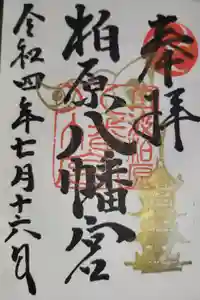 奉拝
柏原八幡宮
令和四年七月十六日